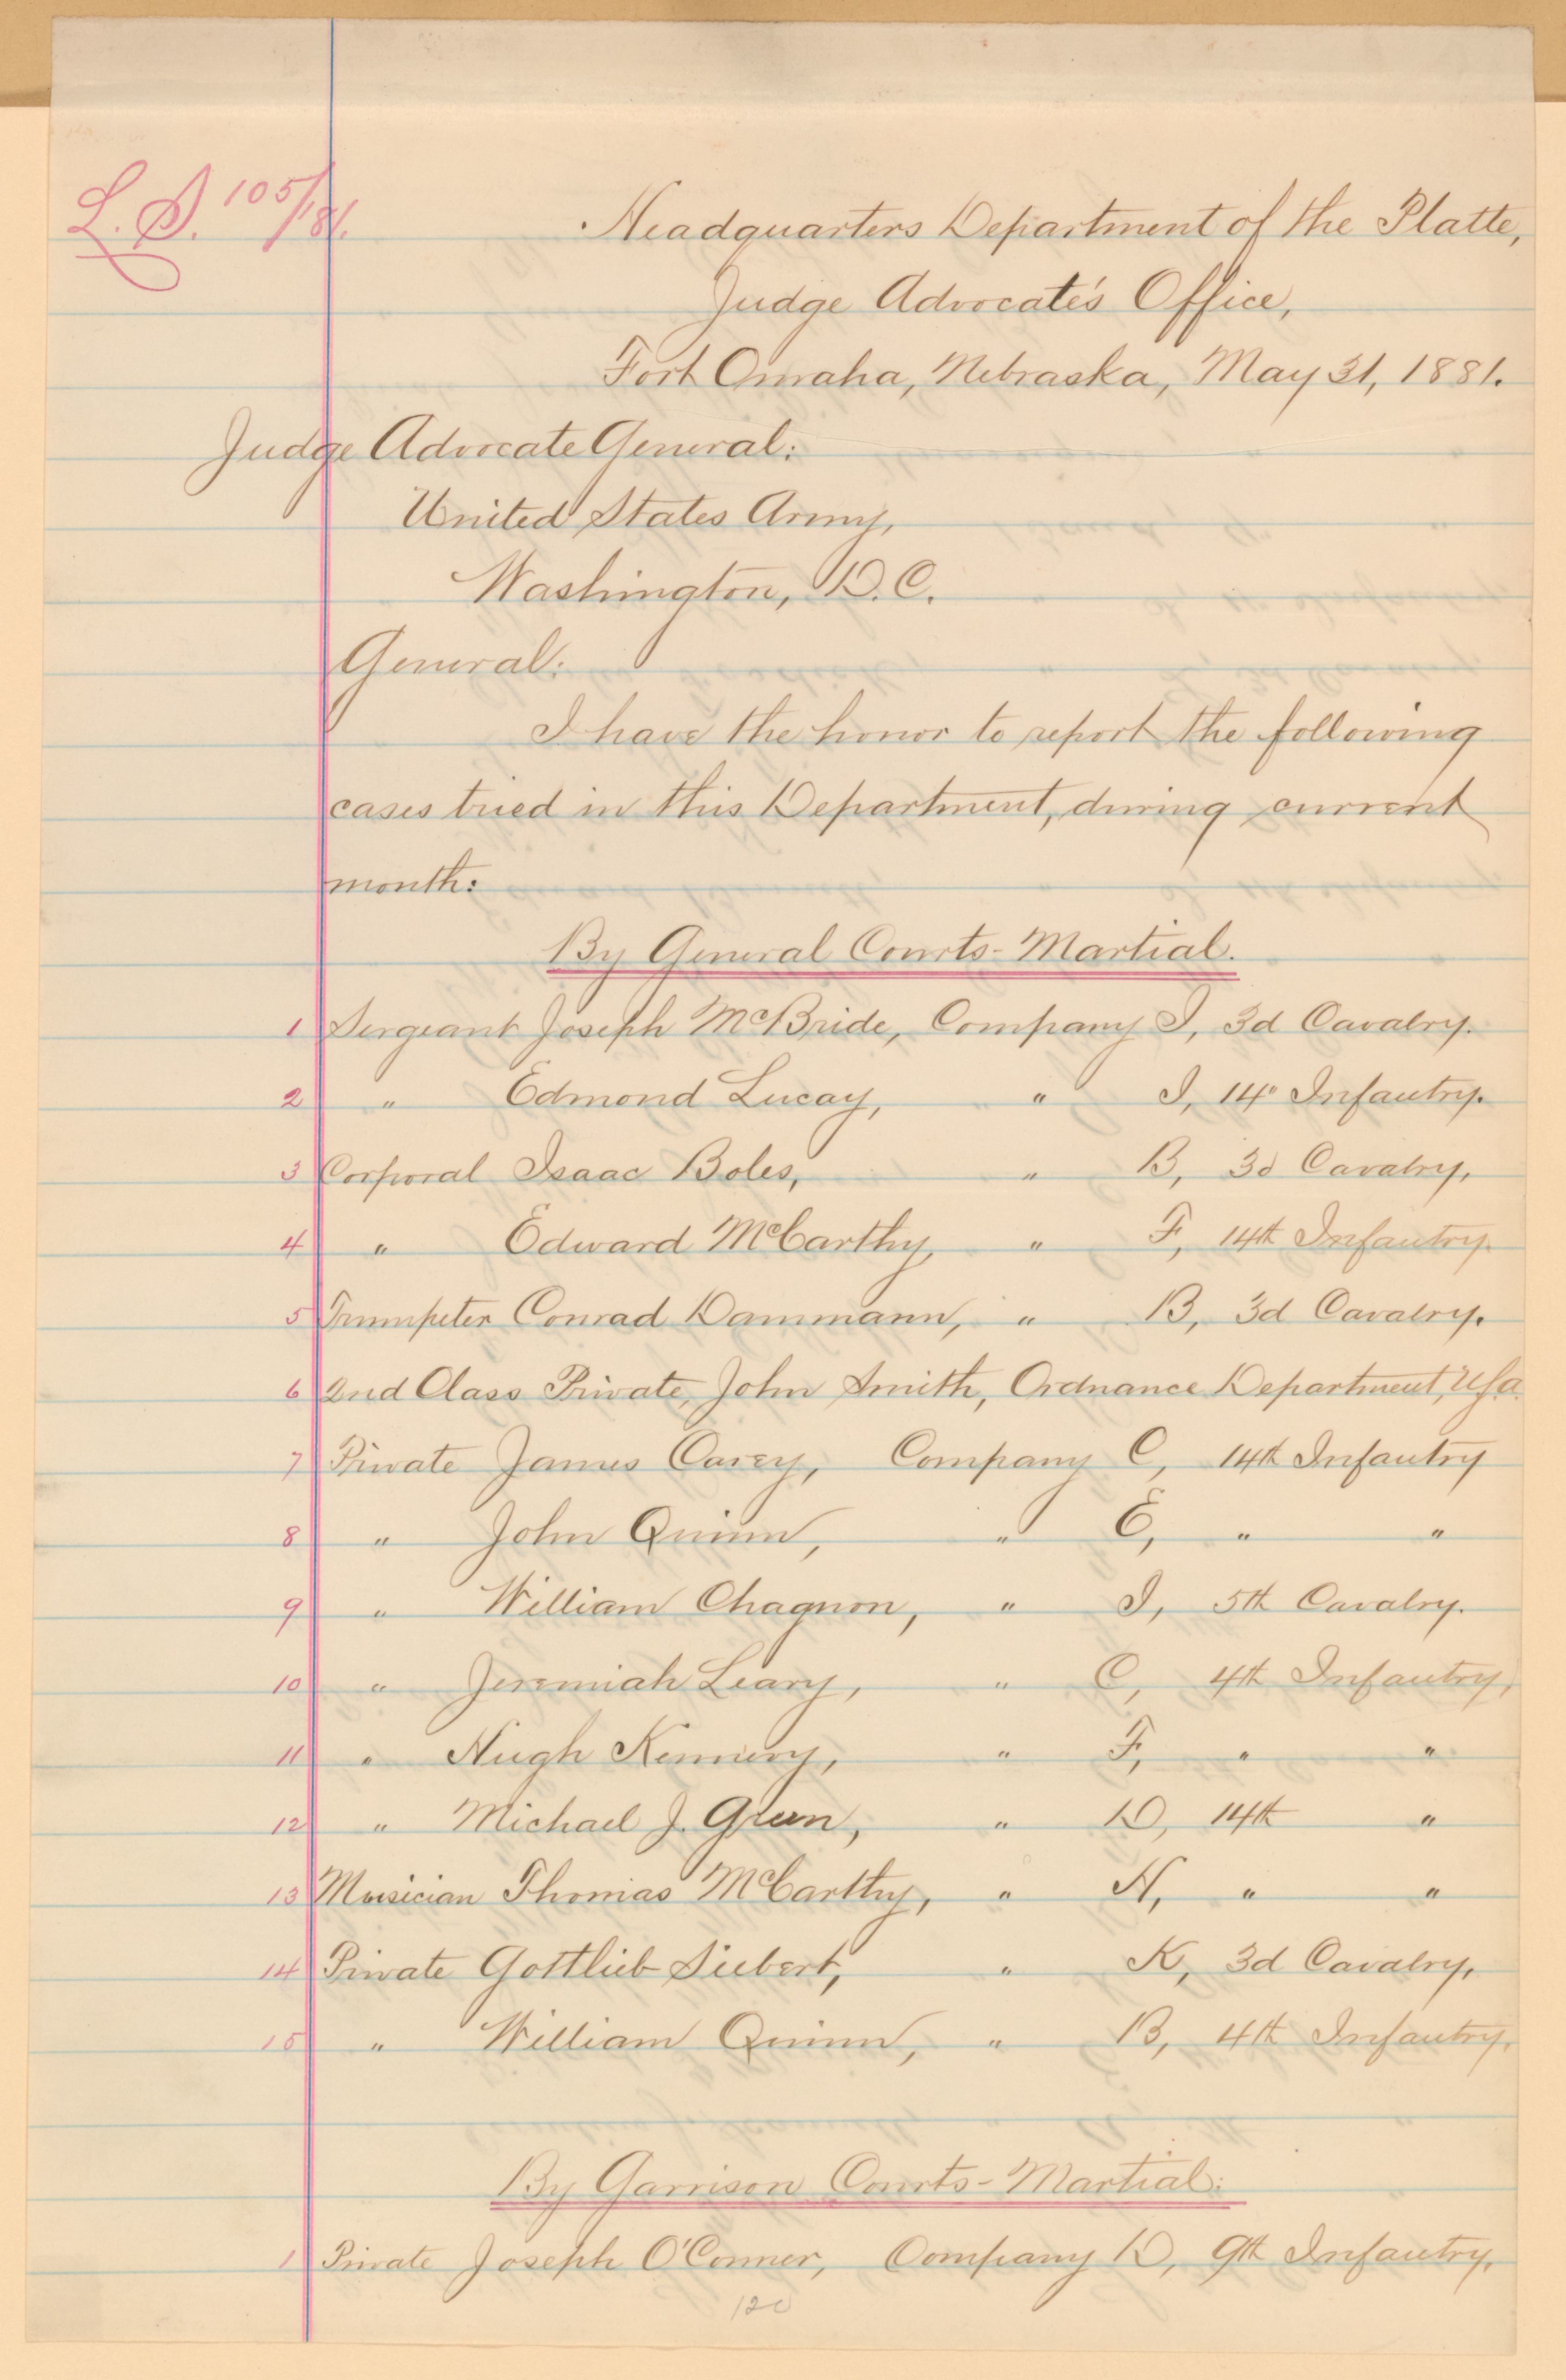 L.S. 105/81.
Headquarters Department of the Platte,
Judge Advocate's Office,
Fort Omaha, Nebraska, May 31, 1881.
Judge Advocate General:
United States Army,
Washington, D.C.
General:
I have the honor to report the following
cases tried in this Department, during current
month:
By General Courts-Martial.
1 Sergeant Joseph McBride, Company I, 3d Cavalry.
2 " Edmond Lucay, " I, 14" Infantry.
3 Corporal Isaac Boles, " B, 3d Cavalry,
4 " Edward McCarthy, " F, 14th Infantry.
5 Trumpeter Conrad Dammann, " B, 3d Cavalry.
6 2nd Class Private, John Smith, Ordnance Department, U.S.A.
7 Private James Carey, Company C, 14th Infantry
8 " John Quinn, " E, " "
9 " William Chagnon, " I, 5th Cavalry.
10 " Jeremiah Leary, " C, 4th Infantry,
11 " Hugh Kennery, " F, " "
12 " Michael J. Green, " D, 14th "
13 Musician Thomas McCarthy, " H, " "
14 Private Gottlieb Siebert, " K, 3d Cavalry,
15 " William Quinn, " B, 4th Infantry,
By Garrison Courts-Martial:
1 Private Joseph O'Conner, Company D, 9th Infantry,
120